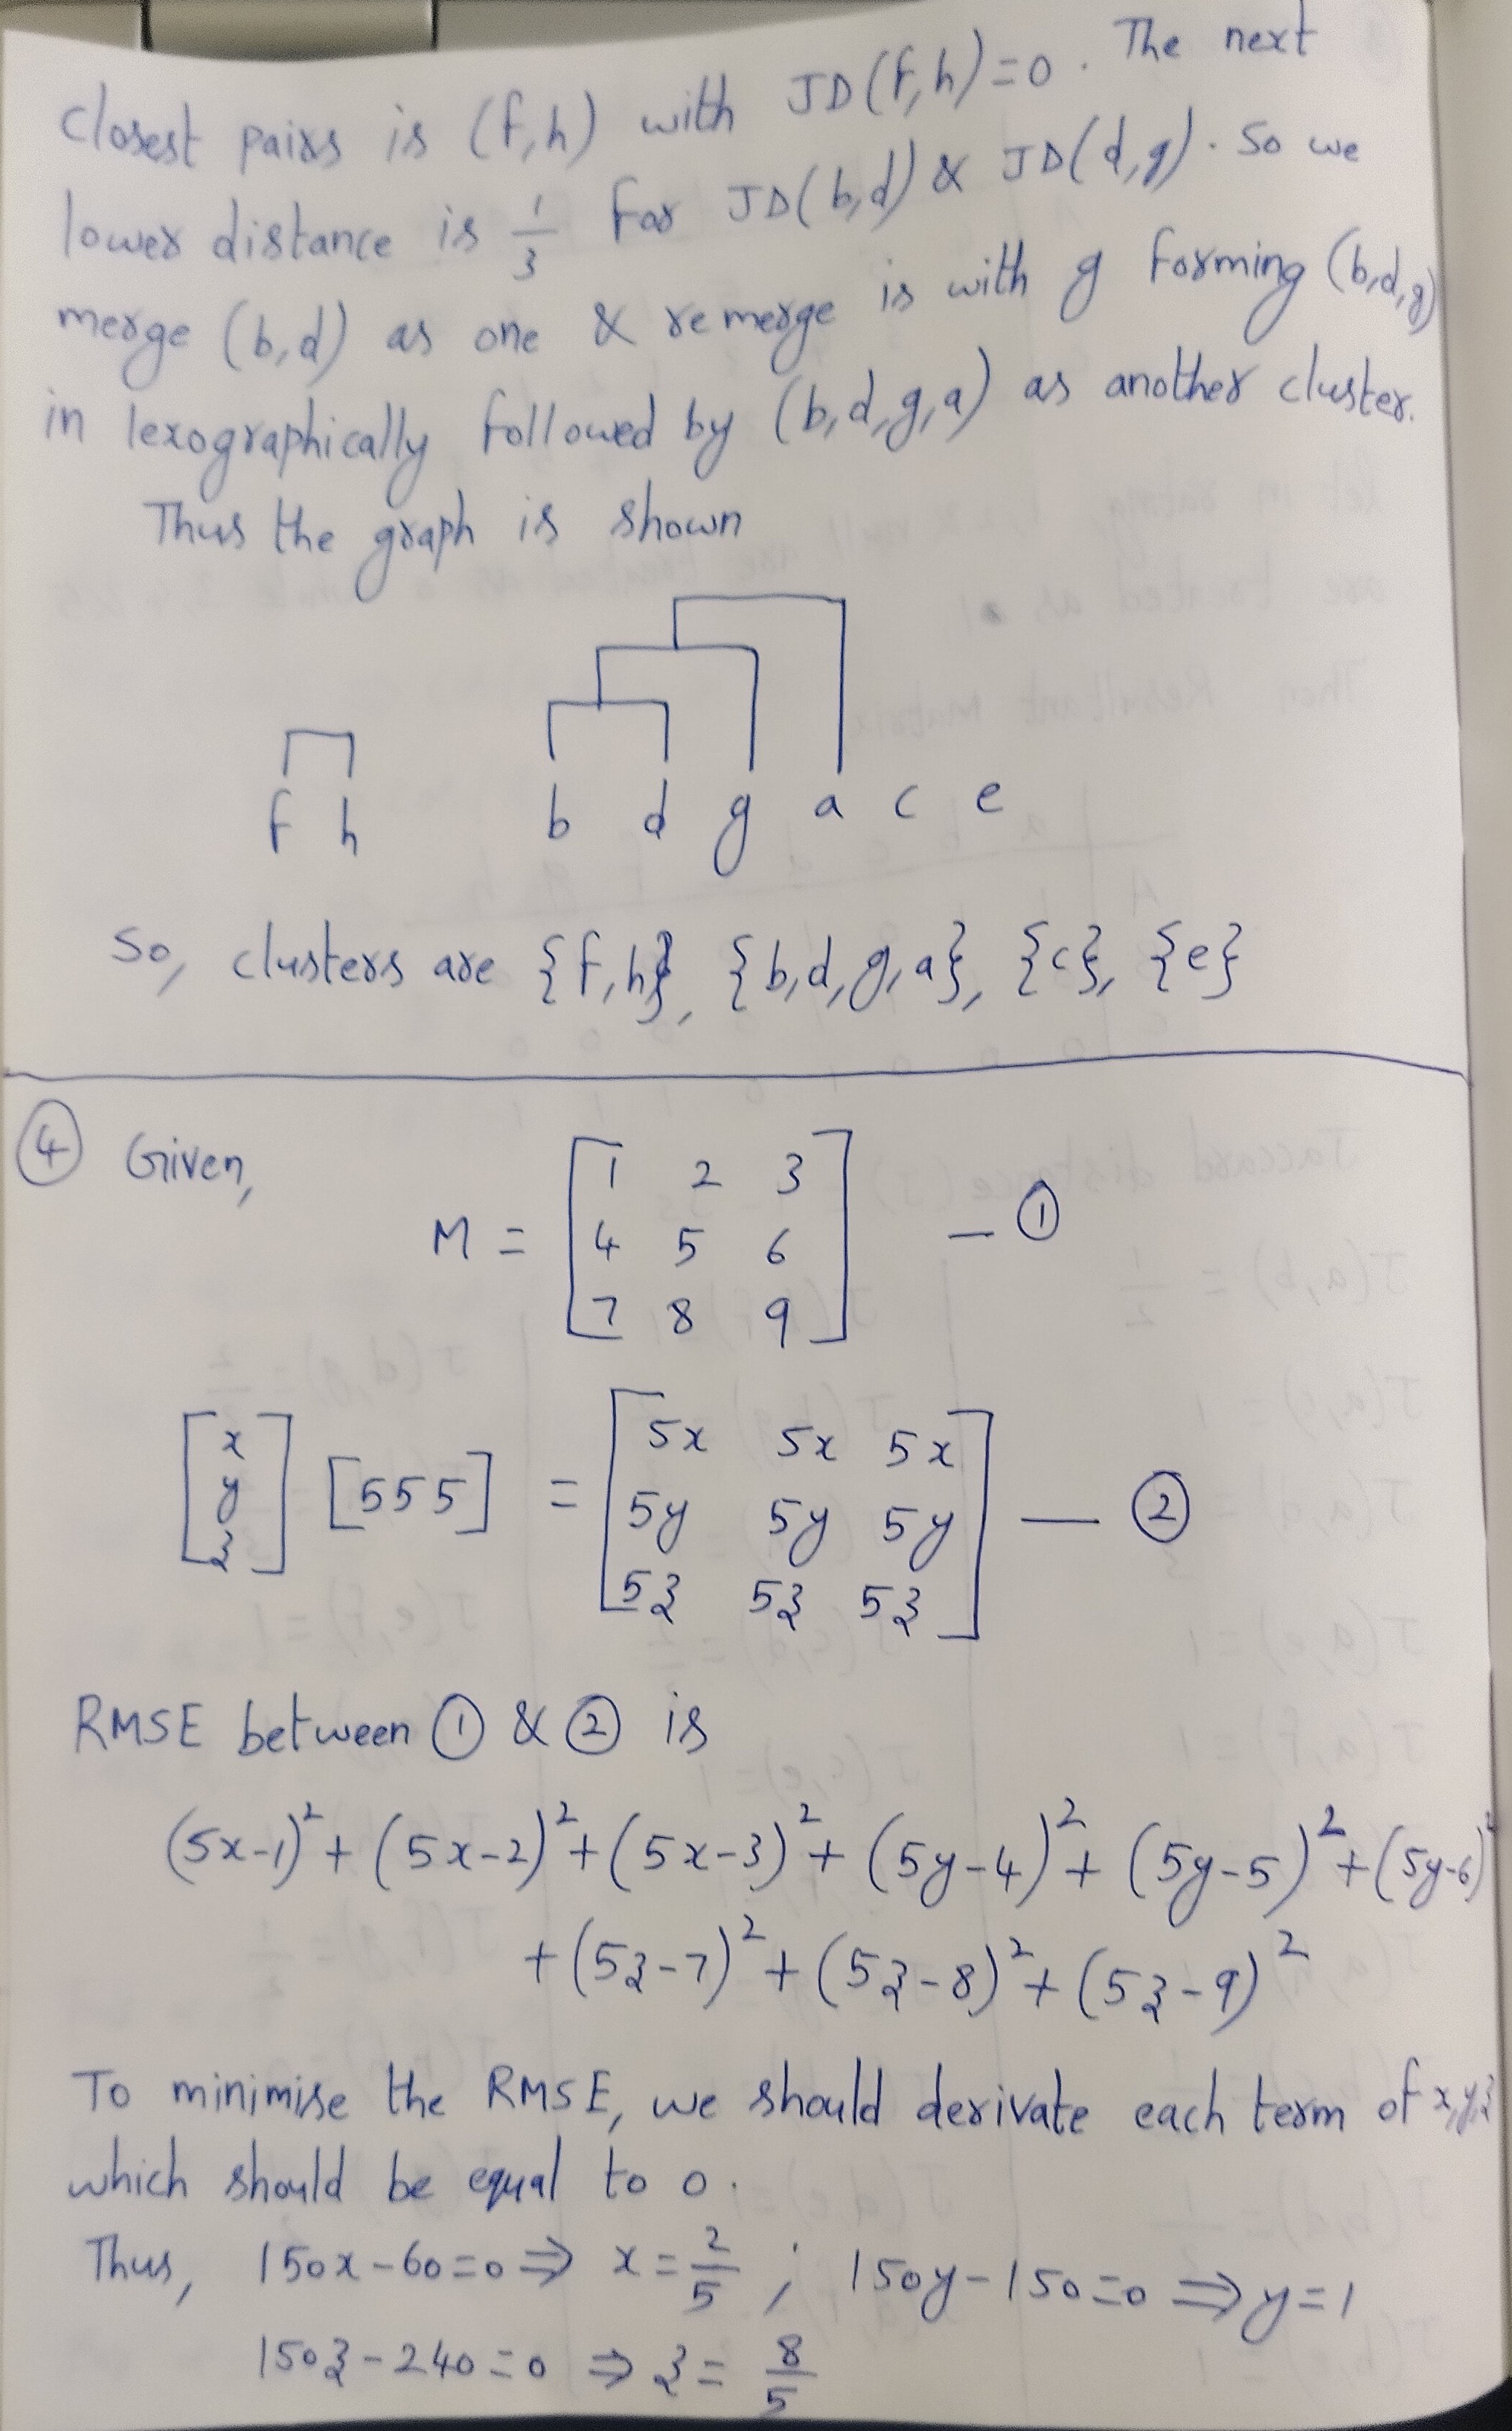 closest pairs is (f,h) with JD(f,h)=0. The next
lower distance is 1/3 for JD(b,d) & JD(d,g). So we
merge (b,d) as one & remerge is with g forming (b,d,g)
in lexographically followed by (b,d,g,a) as another cluster.
Thus the graph is shown
f h b d g a c e
So, clusters are {f,h}, {b,d,g,a}, {c}, {e}
④ Given,
M = [1 2 3 — ①
4 5 6
7 8 9]
[x y z] [5 5 5] = [5x 5x 5x
5y 5y 5y — ②
5z 5z 5z]
RMSE between ① & ② is
(5x-1)² + (5x-2)² + (5x-3)² + (5y-4)² + (5y-5)² + (5y-6)²
+ (5z-7)² + (5z-8)² + (5z-9)²
To minimise the RMSE, we should derivate each term of x,y,z
which should be equal to 0.
Thus, 150x-60=0 ⇒ x = 2/5 ; 150y-150=0 ⇒ y=1
150z-240=0 ⇒ z = 8/5